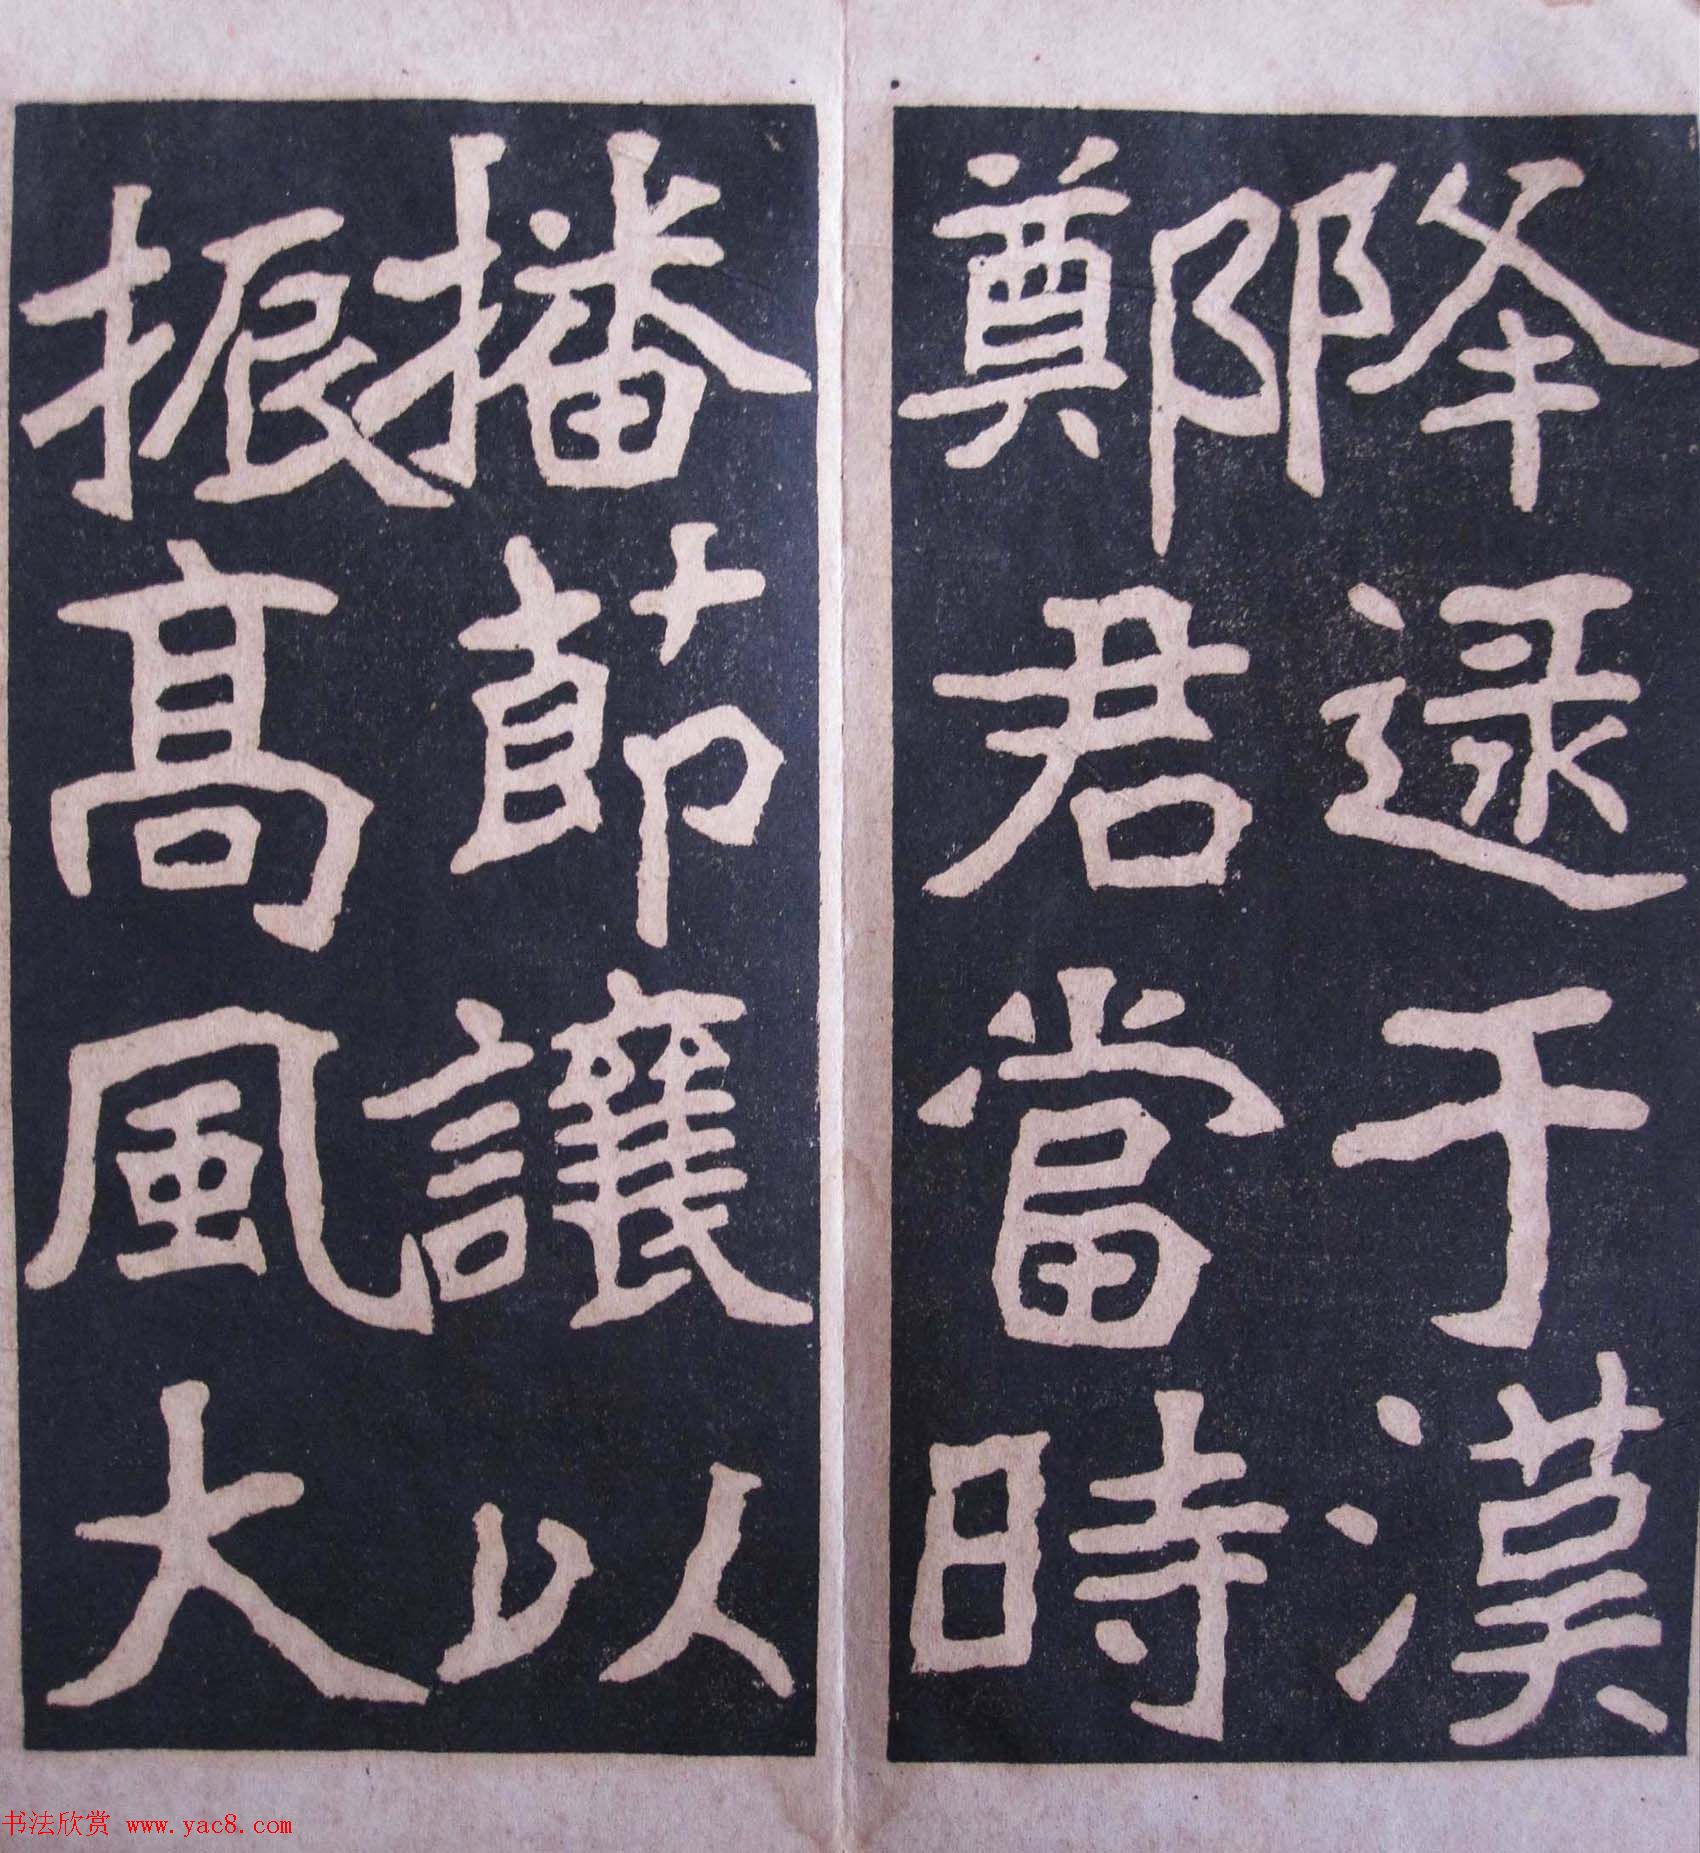 降逯于漢
鄭君當時
播節讓以
振高風大
书法欣赏 www.yac8.com